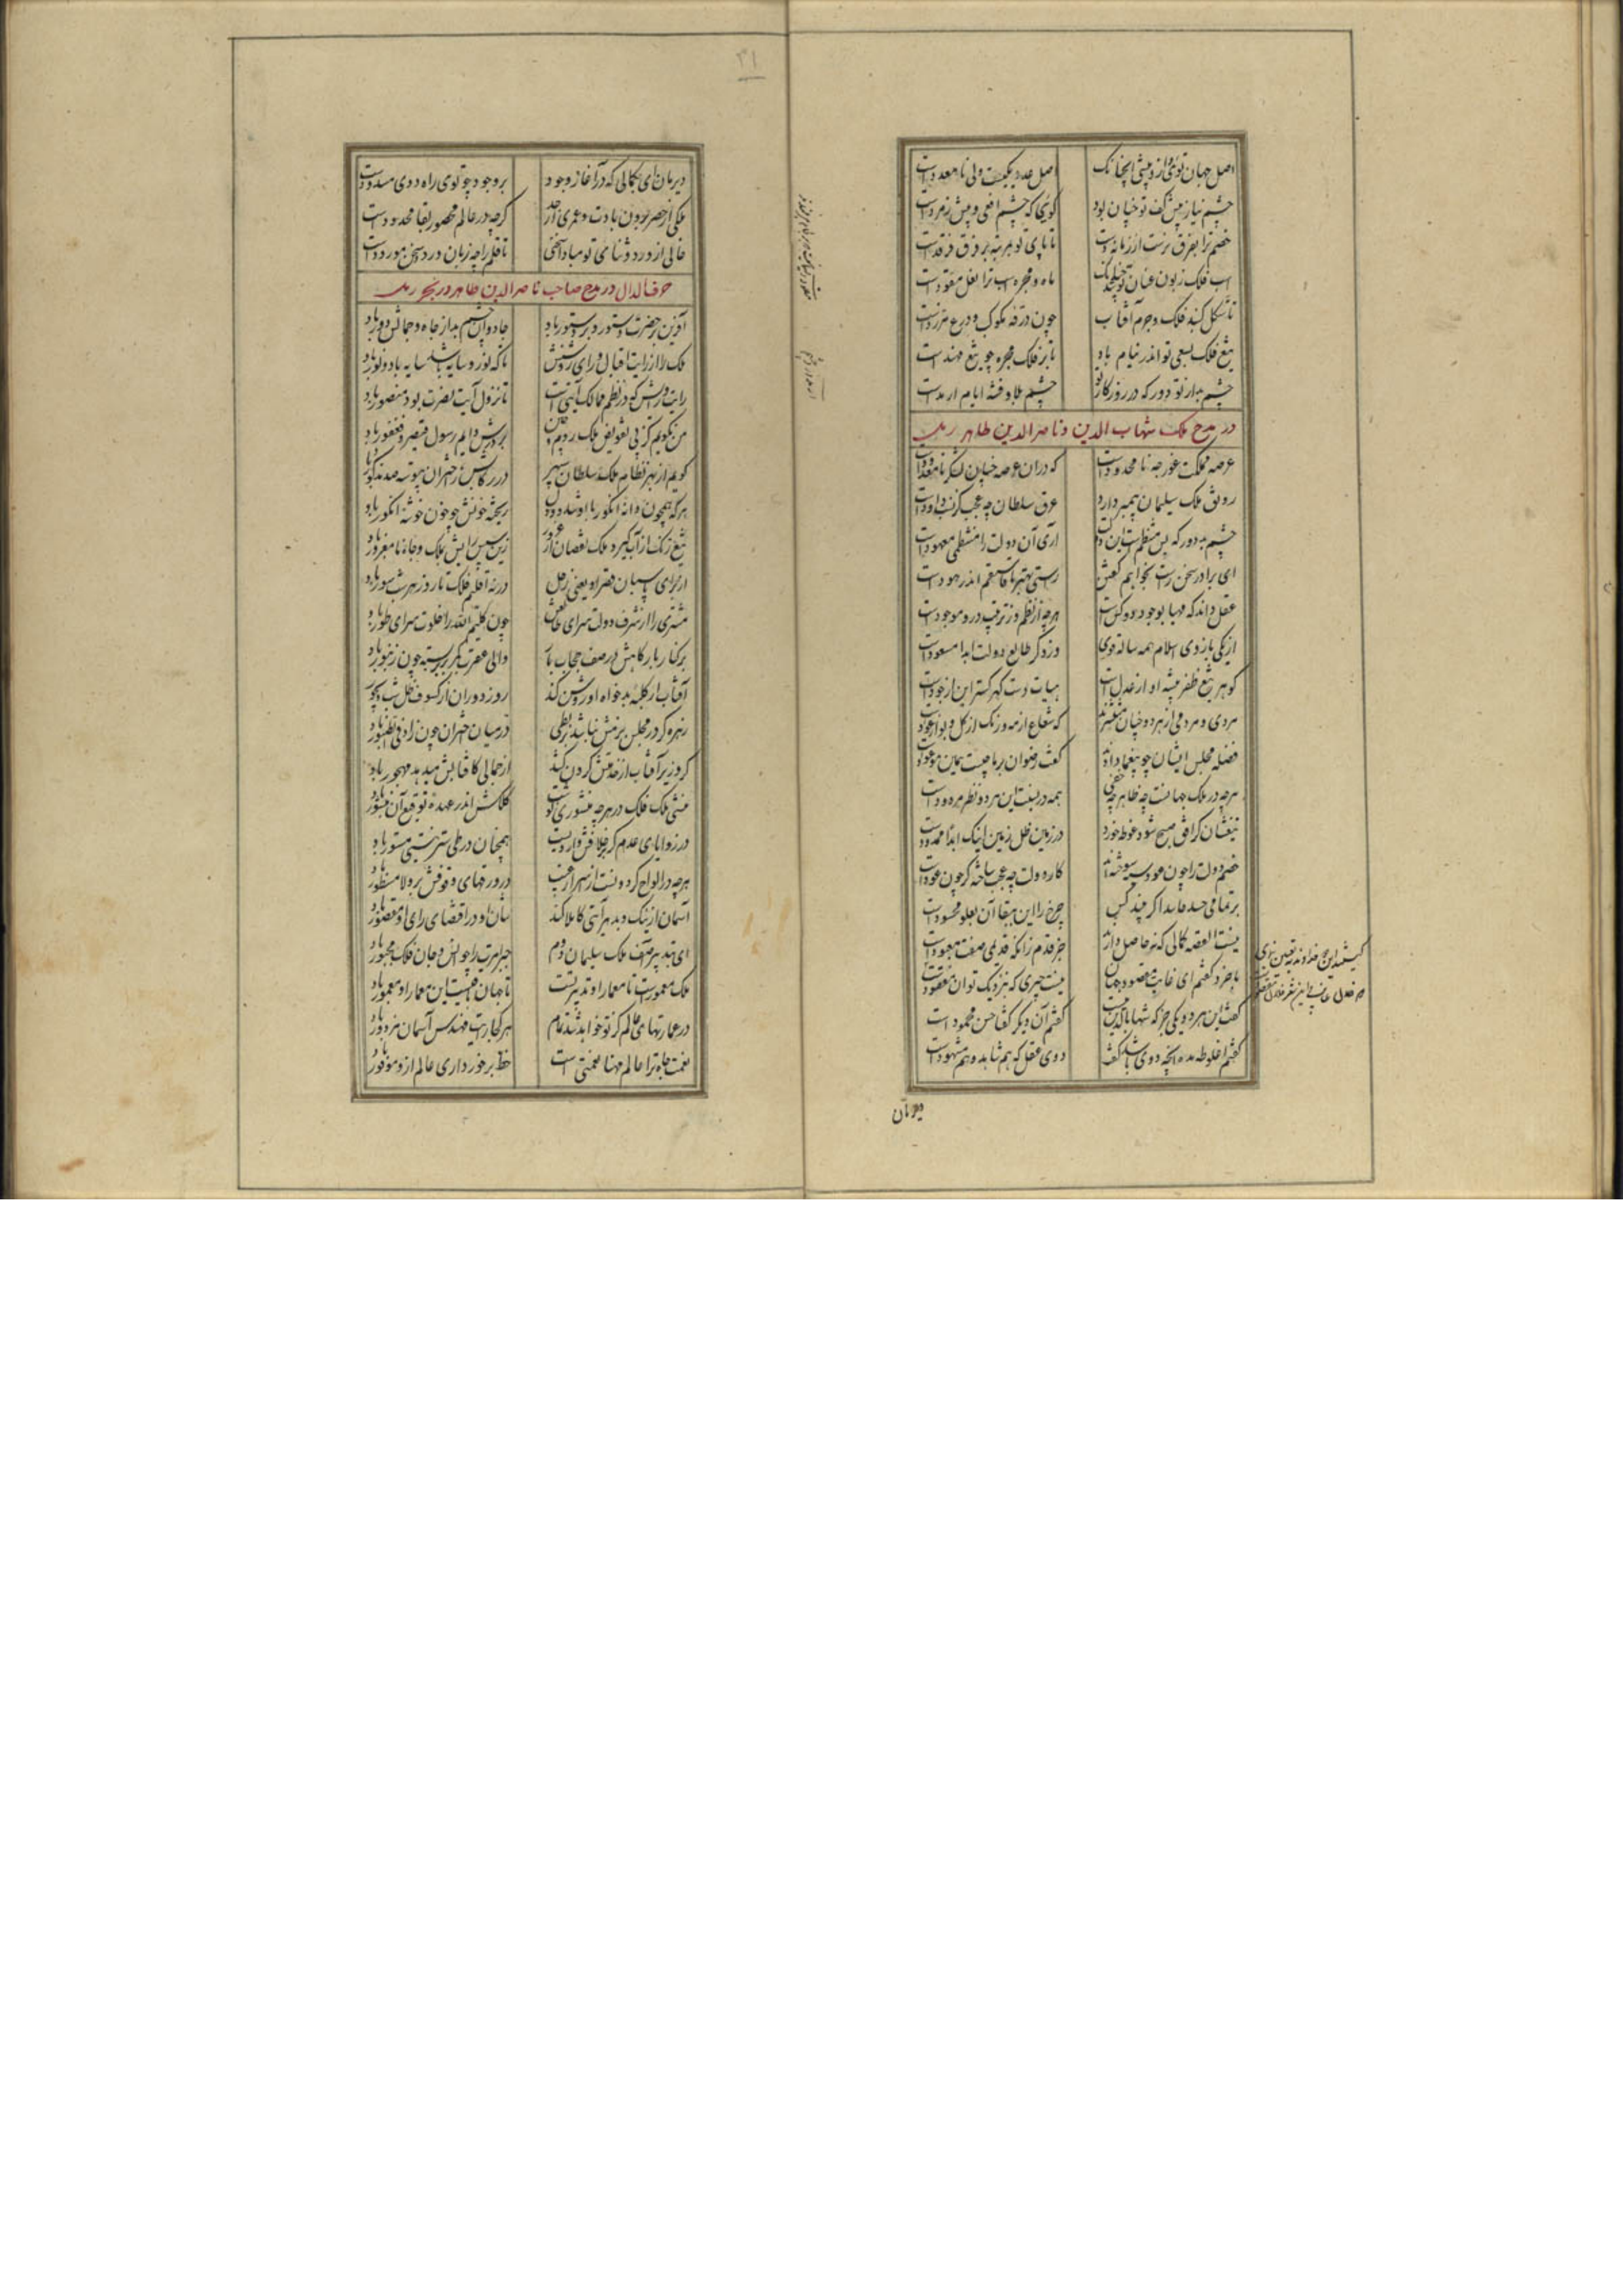 اصل جهان توئی واز و پیشی آنچنانک
اصل عدد یکیست ولی نامعدودست
چشم نیاز پیش کف تو چنان بود
گوئی که چشم افعی و پیش زمردست
خصم ترا بفرق برست از زمانه دست
تا پای تو بمرتبه بر فرق فرقدست
اسب فلک زبون عنان تو
ماه و مجره اسب ترا نعل و مقودست
تا شکل گنبد فلک و جرم آفتاب
چون درقه مکوکب و درع مزردست
تیغ فلک بسعی تو اندر نیام باد
تا بر فلک مجره چو تیغ مهندست
چشم بد از تو دور که در روزگار تو
چشم بلا و فتنه ایام ارمدست
در مدح ملک شهاب الدین و ناصر الدین طاهر
عرصه مملکت غور چه نامحدودست
که در آن عرصه چنان لشکر نامعدودست
رونق ملک سلیمان پیمبر دارد
عرق سلطان چه عجب کز نسب داودست
چشم بد دور که بس منتظم است این دولت
آری آن دولت را منتظمی معهودست
ای برادر سخن راست بخواهم گفتن
راستی بهتر تا فاستقم اندر هودست
عقل داند که مهیا بوجود دو کس است
هرچه از نظم وز ترتیب درو موجودست
از یکی بازوی اسلام همه ساله قوی
وز دگر طالع دولت ابدا مسعودست
گوهر تیغ ظفر پیشه او از عدل است
هیات دست گهر گستر این از جودست
مردی و مردمی از هر دو چنان منتشرند
که شعاع از مه و رنگ از گل و بو از عودست
فضله مجلس ایشان چو بیغما دادند
گفت رضوان بر ما چیست همین موعودست
هرچه در ملک جهانست چه ظاهر چه خفی
همه در نسبت این هر دو نظر مردودست
تیغشان گر افق صبح شود غوطه خورد
در زمین ظل زمین اینک ابدا ممدودست
خصم دولت را چون عود بسوخته‌اند
کار دولت چه عجب ساخته گر چون عودست
بر تمامی حسد حاسد اگر چند کسی
چرخ را این بقا آن بعلو محسودست
نیست القصه کمالی که نه حاصل دارند
جز قدم زانکه قدیمی صفت معبودست
با خرد گفتم ای غایت مقصود جهان
نیست چیزی که بنزدیک تو آن مفقودست
گفت این هر دو یکی جز که شهاب الدین نیست
گفتم آن دیگر گفتا حسن محمودست
گفتم اغلوطه مده اینچه دوی باشد گفت
دوی عقل که هم شاهد و هم مشهودست
دیرمان
دیرمان ای بکمالی که در آغاز وجود
بر وجود چو توی راه دوی مسدودست
ملکی از حصر برون بادت و عمری از حد
گرچه در عالم محصور بقا محدودست
خالی از ورد و ثنای تو مبادا سخنی
تا قلم را چه زبان ورد سخن مورودست
حرف الدال در مدح صاحب ناصر الدین طاهر در بحر رمل
آفرین بر حضرت دستور و بر دستور باد
جاودان چشم بد از جاه و جمالش دور باد
ملک را از رایت اقبال و رای روشنش
تا که نور و سایه باشد سایه باد و نور باد
رایت و رایش که در نظم ممالک آیتی است
تا نزول آیت نصرت بود منصور باد
من نگویم کز پی تفویض ملک روم و چین
بر درش دایم رسول قیصر و فغفور باد
گویم از بهر نظام ملک سلطان سپهر
در رکابش ز اختران پیوسته صد مذکور باد
هرکه همچون دانه انگور با او شد دو دل
ریخته خونش چو خون خوشه انگور باد
تیغ زنگ از آب گیرد ملک نقصان از غرور
زین سپس رایش بملک و جاه نامغرور باد
از برای پاسبان قصر او یعنی زحل
در نه اقلیم فلک تا روز هر شب سور باد
مشتری را از شرف دولت سرای طالعش
چون کلیم الله را خلوت سرای طور باد
بر کنار بارگاهش در صف حجاب بار
والی عقرب کمر بر بسته چون زنبور باد
آفتاب ار کلبه بدخواه او روشن کند
روز دوران از کسوف کل شب دیجور باد
زهره گر در مجلس بزمش نباشد بربطی
در میان اختران چون زاد فی الطنبور باد
گر وزیر آفتاب از خدمتش گردن کشد
از جمالی کافتابش میدهد مهجور باد
منشی ملک فلک در هرچه منشوری نوشت
کلکش اندر عهده توقیع آن منشور باد
در زوایای عدم کز خلافش واردیست
همچنان در طی ستر نیستی مستور باد
هرچه در الواح گردونست از اسرار غیب
در ورقهای وقوفش بر ولا مسطور باد
آسمان از نیک و بد هر آیتی کاملا کند
شان او در اقتضای رای او مقصور باد
ای بتدبیر آصف ملک سلیمان دوم
جبر امرت را چو انس و جان فلک مجبور باد
ملک معمورست تا معمار او تدبیر تست
تا جهان باقیست این معمار او معمور باد
در عمارتهای عالم کز تو خواهد شد تمام
هر کجا رایت مهندس آسمان مزدور باد
نعمت جاه ترا عالم مهنا نعمتی است
حظ برخورداری عالم ازو موفور باد